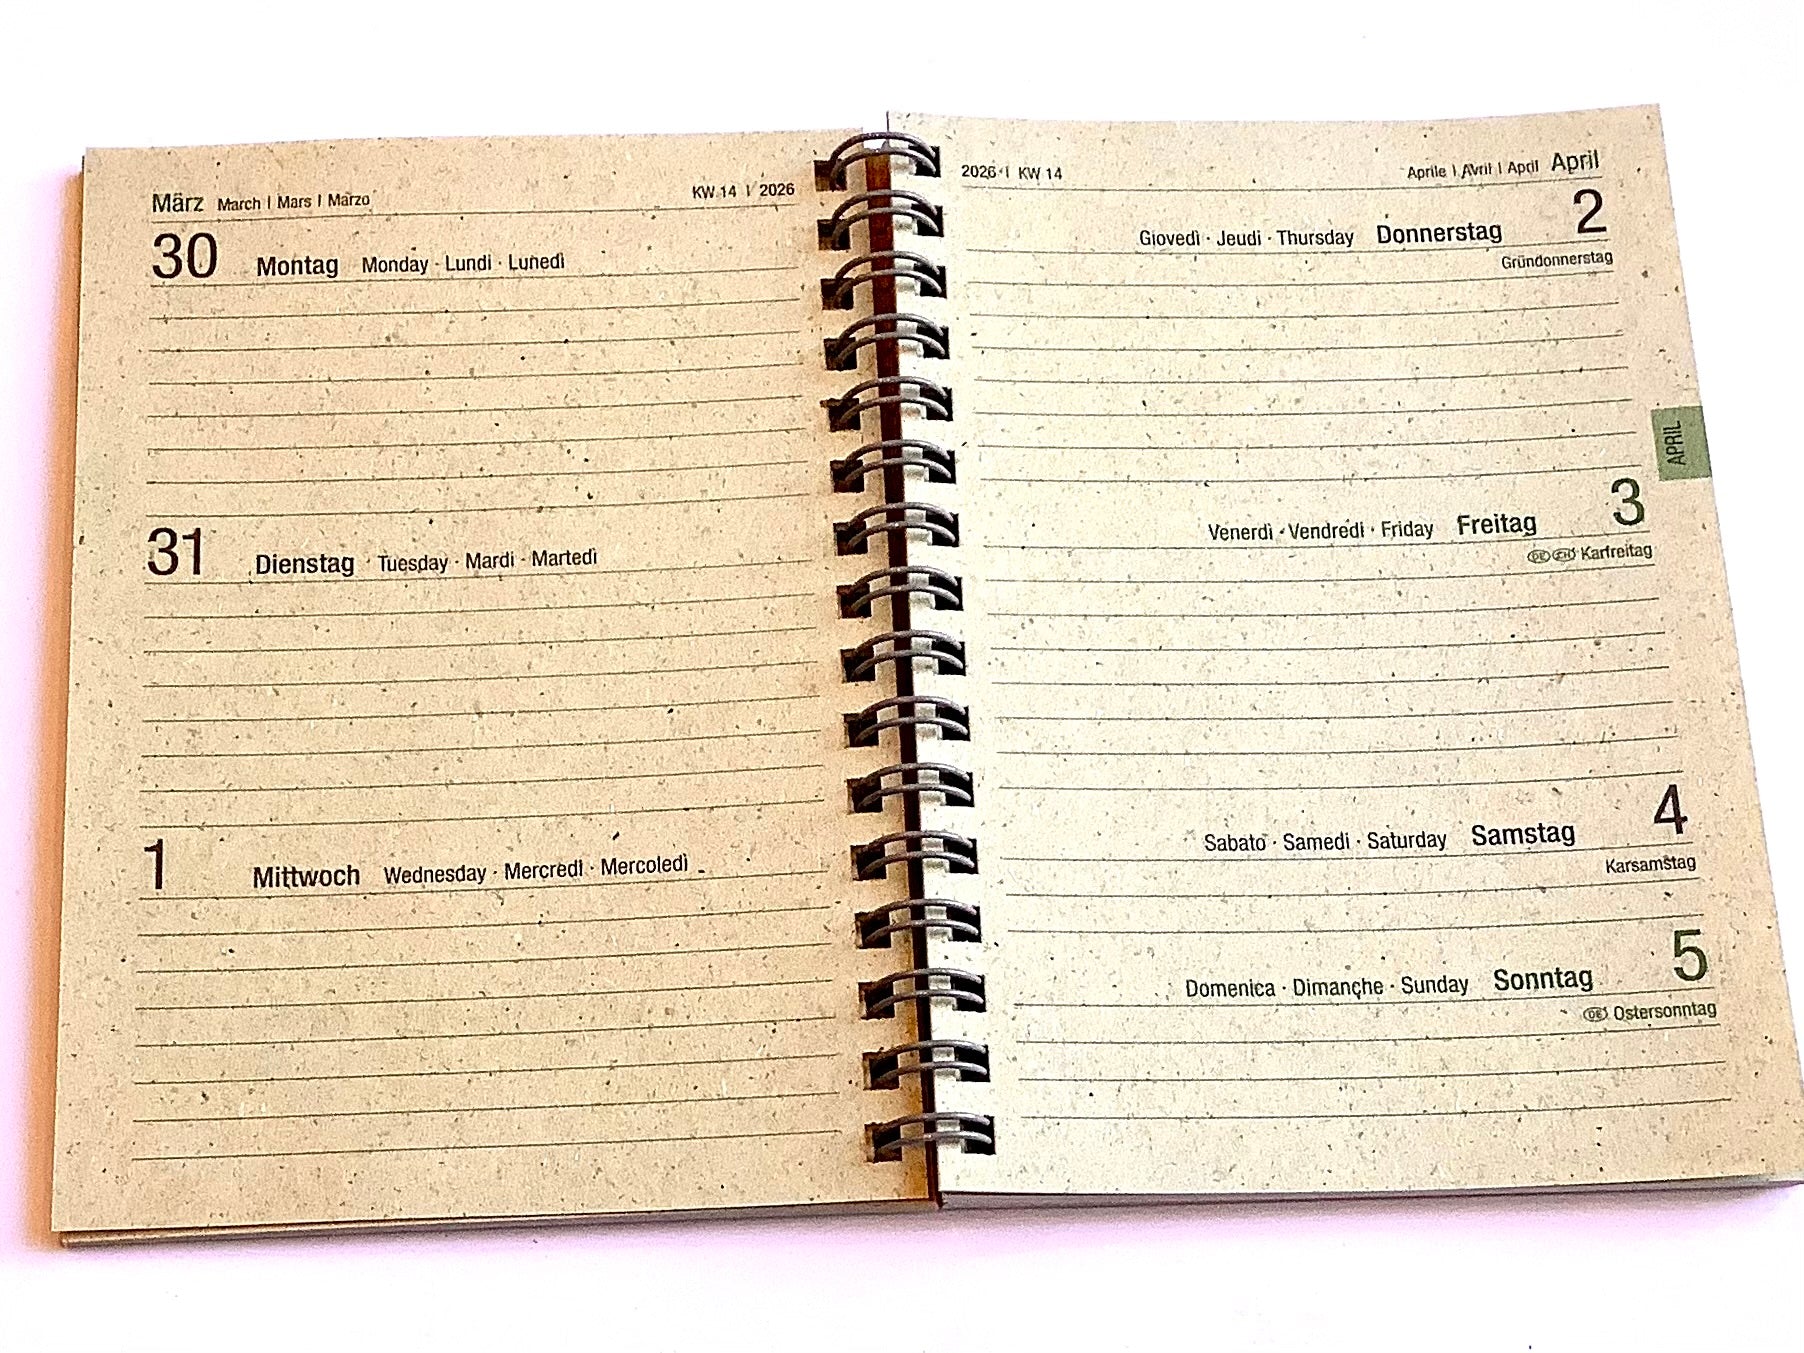 März March | Mars | Marzo KW 14 | 2026
30 Montag Monday · Lundi · Lunedì
31 Dienstag · Tuesday · Mardi · Martedì
1 Mittwoch Wednesday · Mercredi · Mercoledì
2026 | KW 14 Aprile | Avril | April April
Giovedì · Jeudi · Thursday Donnerstag 2
Gründonnerstag
APRIL
Venerdì · Vendredi · Friday Freitag 3
DE CH Karfreitag
Sabato · Samedi · Saturday Samstag 4
Karsamstag
Domenica · Dimanche · Sunday Sonntag 5
DE Ostersonntag